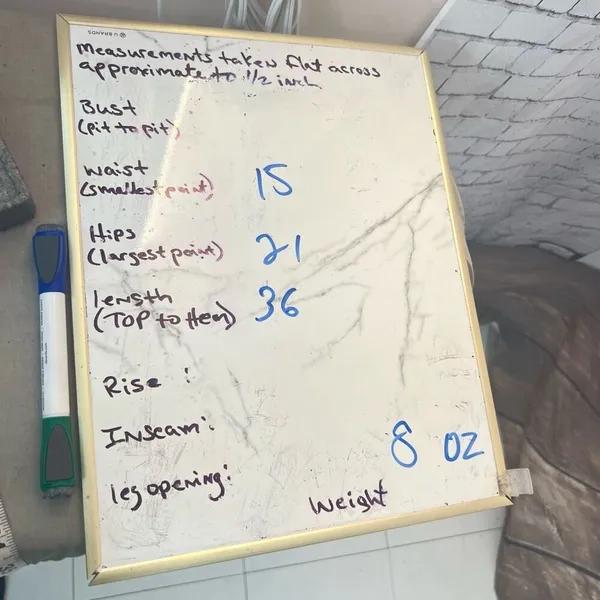 U BRANDS
Measurements taken flat across
approximate to 1/2 inch
Bust
(pit to pit)
Waist
(smallest point) 15
Hips
(largest point) 21
length
(TOP to Hem) 36
Rise :
Inseam:
8 OZ
leg opening:
Weight